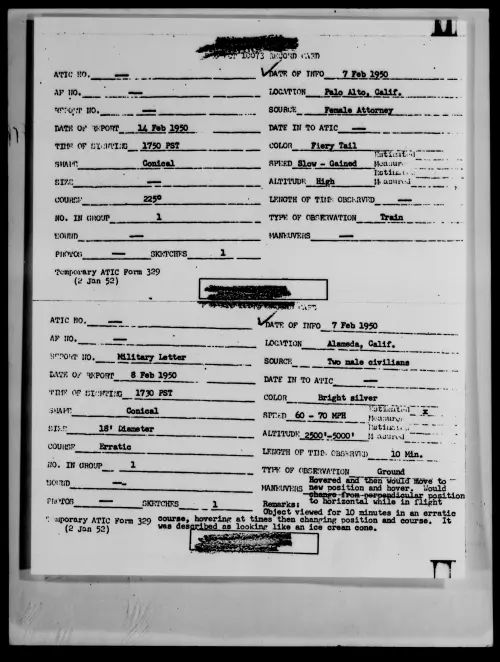 RECORD CARD
ATIC NO. — DATE OF INFO 7 Feb 1950
AF NO. — LOCATION Palo Alto, Calif.
REPORT NO. — SOURCE Female Attorney
DATE OF REPORT 14 Feb 1950 DATE IN TO ATIC —
TIME OF SIGHTING 1750 PST COLOR Fiery Tail
SHAPE Conical SPEED Slow - Gained Estimated Measured
SIZE — ALTITUDE High Estimated Measured
COURSE 225° LENGTH OF TIME OBSERVED —
NO. IN GROUP 1 TYPE OF OBSERVATION Train
SOUND — MANEUVERS —
PHOTOS — SKETCHES 1
Temporary ATIC Form 329
(2 Jan 52)
CARD
ATIC NO. — DATE OF INFO 7 Feb 1950
AF NO. — LOCATION Alameda, Calif.
REPORT NO. Military Letter SOURCE Two male civilians
DATE OF REPORT 8 Feb 1950 DATE IN TO ATIC —
TIME OF SIGHTING 1730 PST COLOR Bright silver
SHAPE Conical SPEED 60 - 70 MPH Estimated x Measured
SIZE 18' Diameter ALTITUDE 2500'-5000' Estimated Measured
COURSE Erratic LENGTH OF TIME OBSERVED 10 Min.
NO. IN GROUP 1 TYPE OF OBSERVATION Ground
SOUND — MANEUVERS Hovered and then would move to
new position and hover. Would
change from perpendicular position
to horizontal while in flight
PHOTOS — SKETCHES 1 Remarks:
Object viewed for 10 minutes in an erratic
Temporary ATIC Form 329 course, hovering at times then changing position and course. It
(2 Jan 52) was described as looking like an ice cream cone.